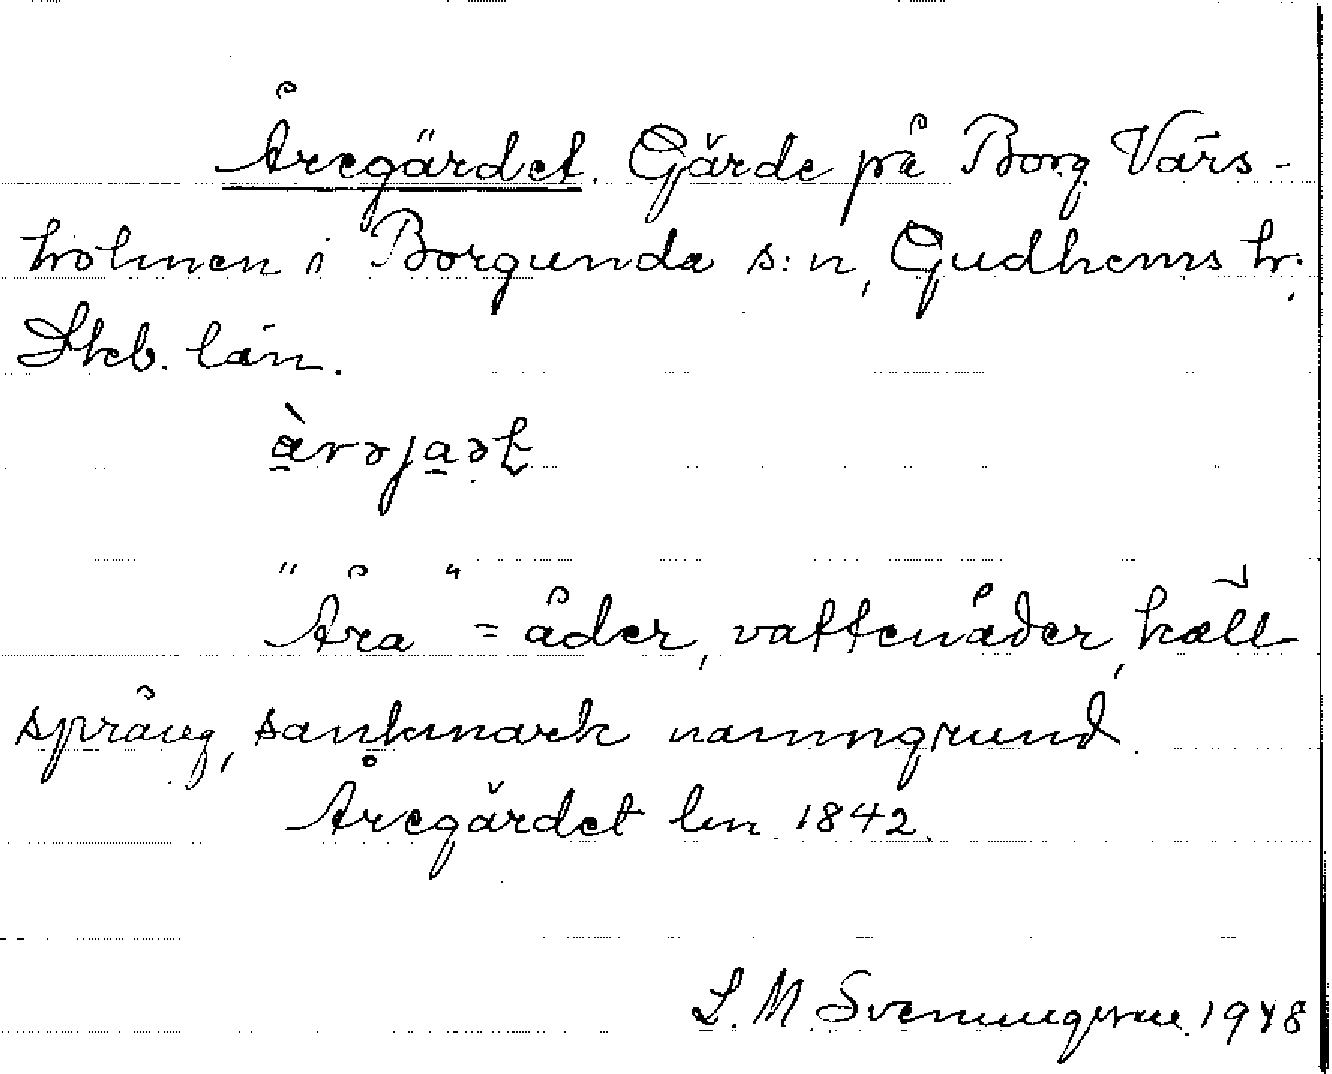 Åregärdet. Gärde på Borg. Värs-
holmen i Borgunda s:n, Gudhems hr.
Skb. län.
àrəjaət
"Åra" = åder, vattenåder, käll
språng, sankmark namngrund.
Åregärdet lm 1842.
L. M Svenungsson 1948